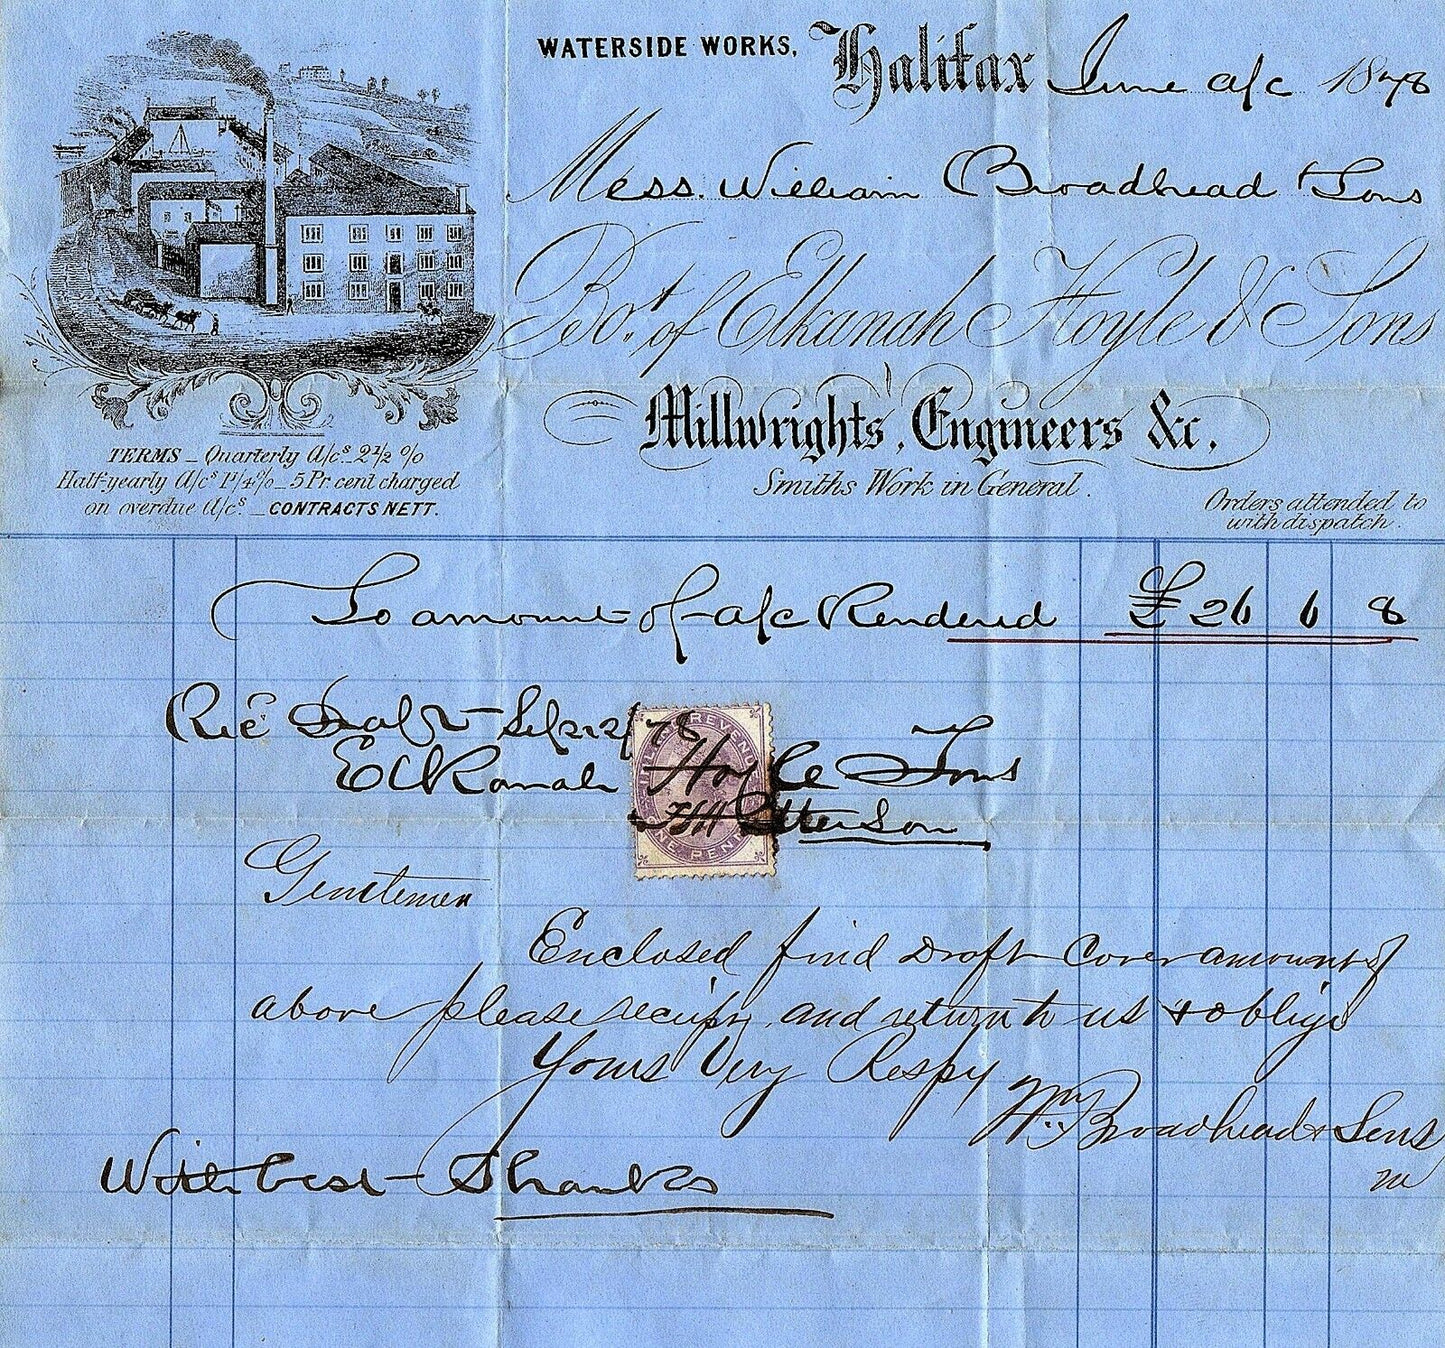 WATERSIDE WORKS, Halifax June a/c 1878
Mess. William Broadhead & Sons
Bot. of Elkanah Hoyle & Sons
Millwrights, Engineers &c.
Smiths Work in General.
Orders attended to
with dispatch.
TERMS _ Quarterly A/cs 2½ %
Half-yearly A/cs 1¼% _ 5 Pr cent charged
on overdue A/cs. _ CONTRACTS NETT.
To amount of a/c Rendered £26 6 8
Recd Draft Sep 78
Elkanah Hoyle & Sons
INLAND REVENUE
ONE PENNY
Gentlemen
Enclosed find Draft Cover amount of
above please receipt and return to us & oblige
Yours Very Respy
Wm. Broadhead & Sons
With best Thanks